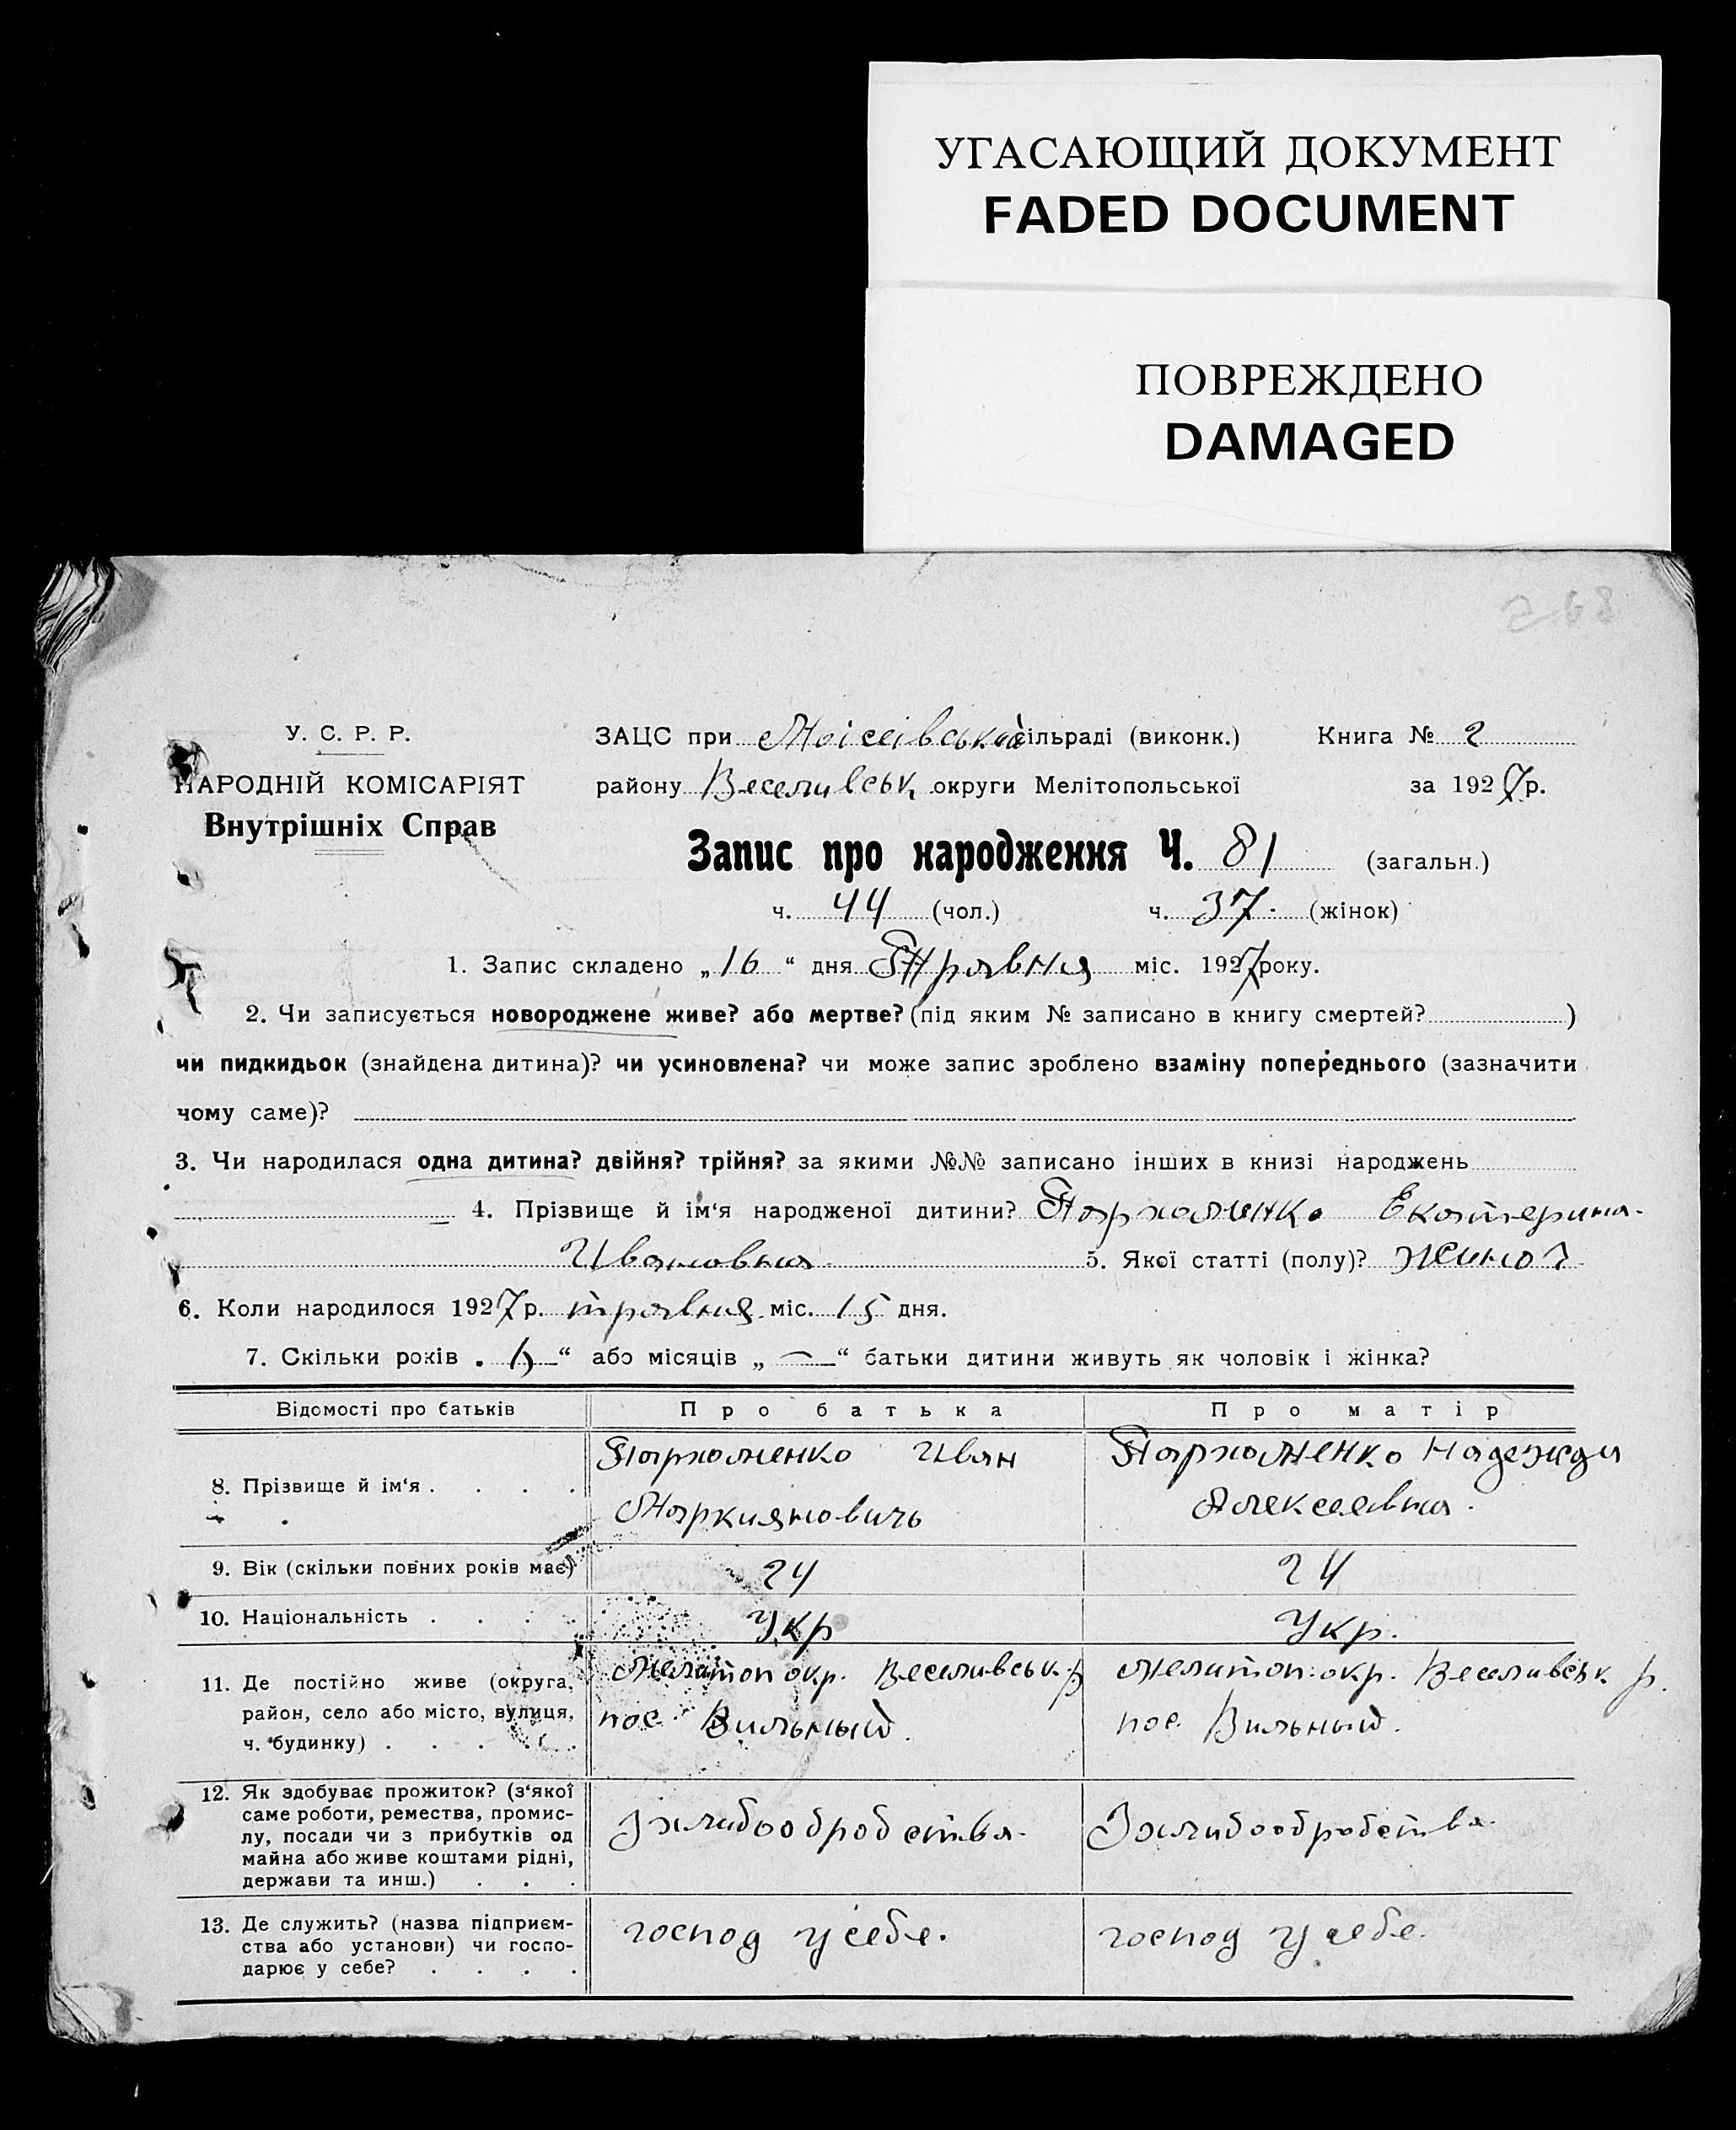 УГАСАЮЩИЙ ДОКУМЕНТ
FADED DOCUMENT
ПОВРЕЖДЕНО
DAMAGED
268
У. С. Р. Р.
НАРОДНІЙ КОМІСАРІЯТ
Внутрішніх Справ
ЗАЦС при Моісеівській сільраді (виконк.) Книга № 2
району Веселивськ. округи Мелітопольської за 1927 р.
Запис про народження Ч. 81 (загальн.)
ч. 44 (чол.) ч. 37. (жінок)
1. Запис складено „16“ дня Травня міс. 1927 року.
2. Чи записується новороджене живе? або мертве? (під яким № записано в книгу смертей? )
чи пидкидьок (знайдена дитина)? чи усиновлена? чи може запис зроблено взаміну попереднього (зазначити
чому саме)?
3. Чи народилася одна дитина? двійня? трійня? за якими №№ записано інших в книзі народжень
4. Прізвище й ім‘я народженої дитини? Пархоменко Екатерина
Ивановна 5. Якої статті (полу)?
6. Коли народилося 1927 р. травня міс. 15 дня.
7. Скільки років „ “ або місяців „ — “ батьки дитини живуть як чоловік і жінка?
Відомості про батьків Про батька Про матір
8. Прізвище й ім‘я . . . . Пархоменко Иван Пархоменко Надежда
Маркияновичь Алексеевна.
9. Вік (скільки повних років має) 24 24
10. Національність . . . . Укр Укр.
11. Де постійно живе (округа, Мелитоп окр. Веселивськ. р Мелитоп. окр. Веселивськ р.
район, село або місто, вулиця, пос. Вильный. пос. Вильный.
ч. будинку) . . . . .
12. Як здобуває прожиток? (з‘якої
саме роботи, ремества, промис-
лу, посади чи з прибутків од З хлибообробства. З хлибообробства.
майна або живе коштами рідні,
держави та инш.) . . .
13. Де служить? (назва підприєм- господ у себе. господ у себе.
ства або установи) чи госпо-
дарює у себе? . . . .